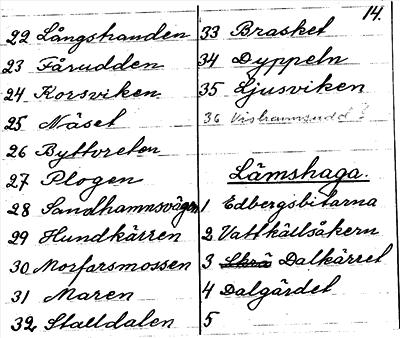 14.
22 Långstranden
23 Fårudden
24 Korsviken
25 Näset
26 Byttvreten
27 Plogen
28 Sandhamnsvägen
29 Hundkärren
30 Morfarsmossen
31 Maren
32 Stalldalen
33 Brasket
34 Dyppeln
35 Ljusviken
36
Lämshaga.
1 Edbergsbitarna
2 Vattkällsåkern
3 Dalkärret
4 Dalgärdet
5